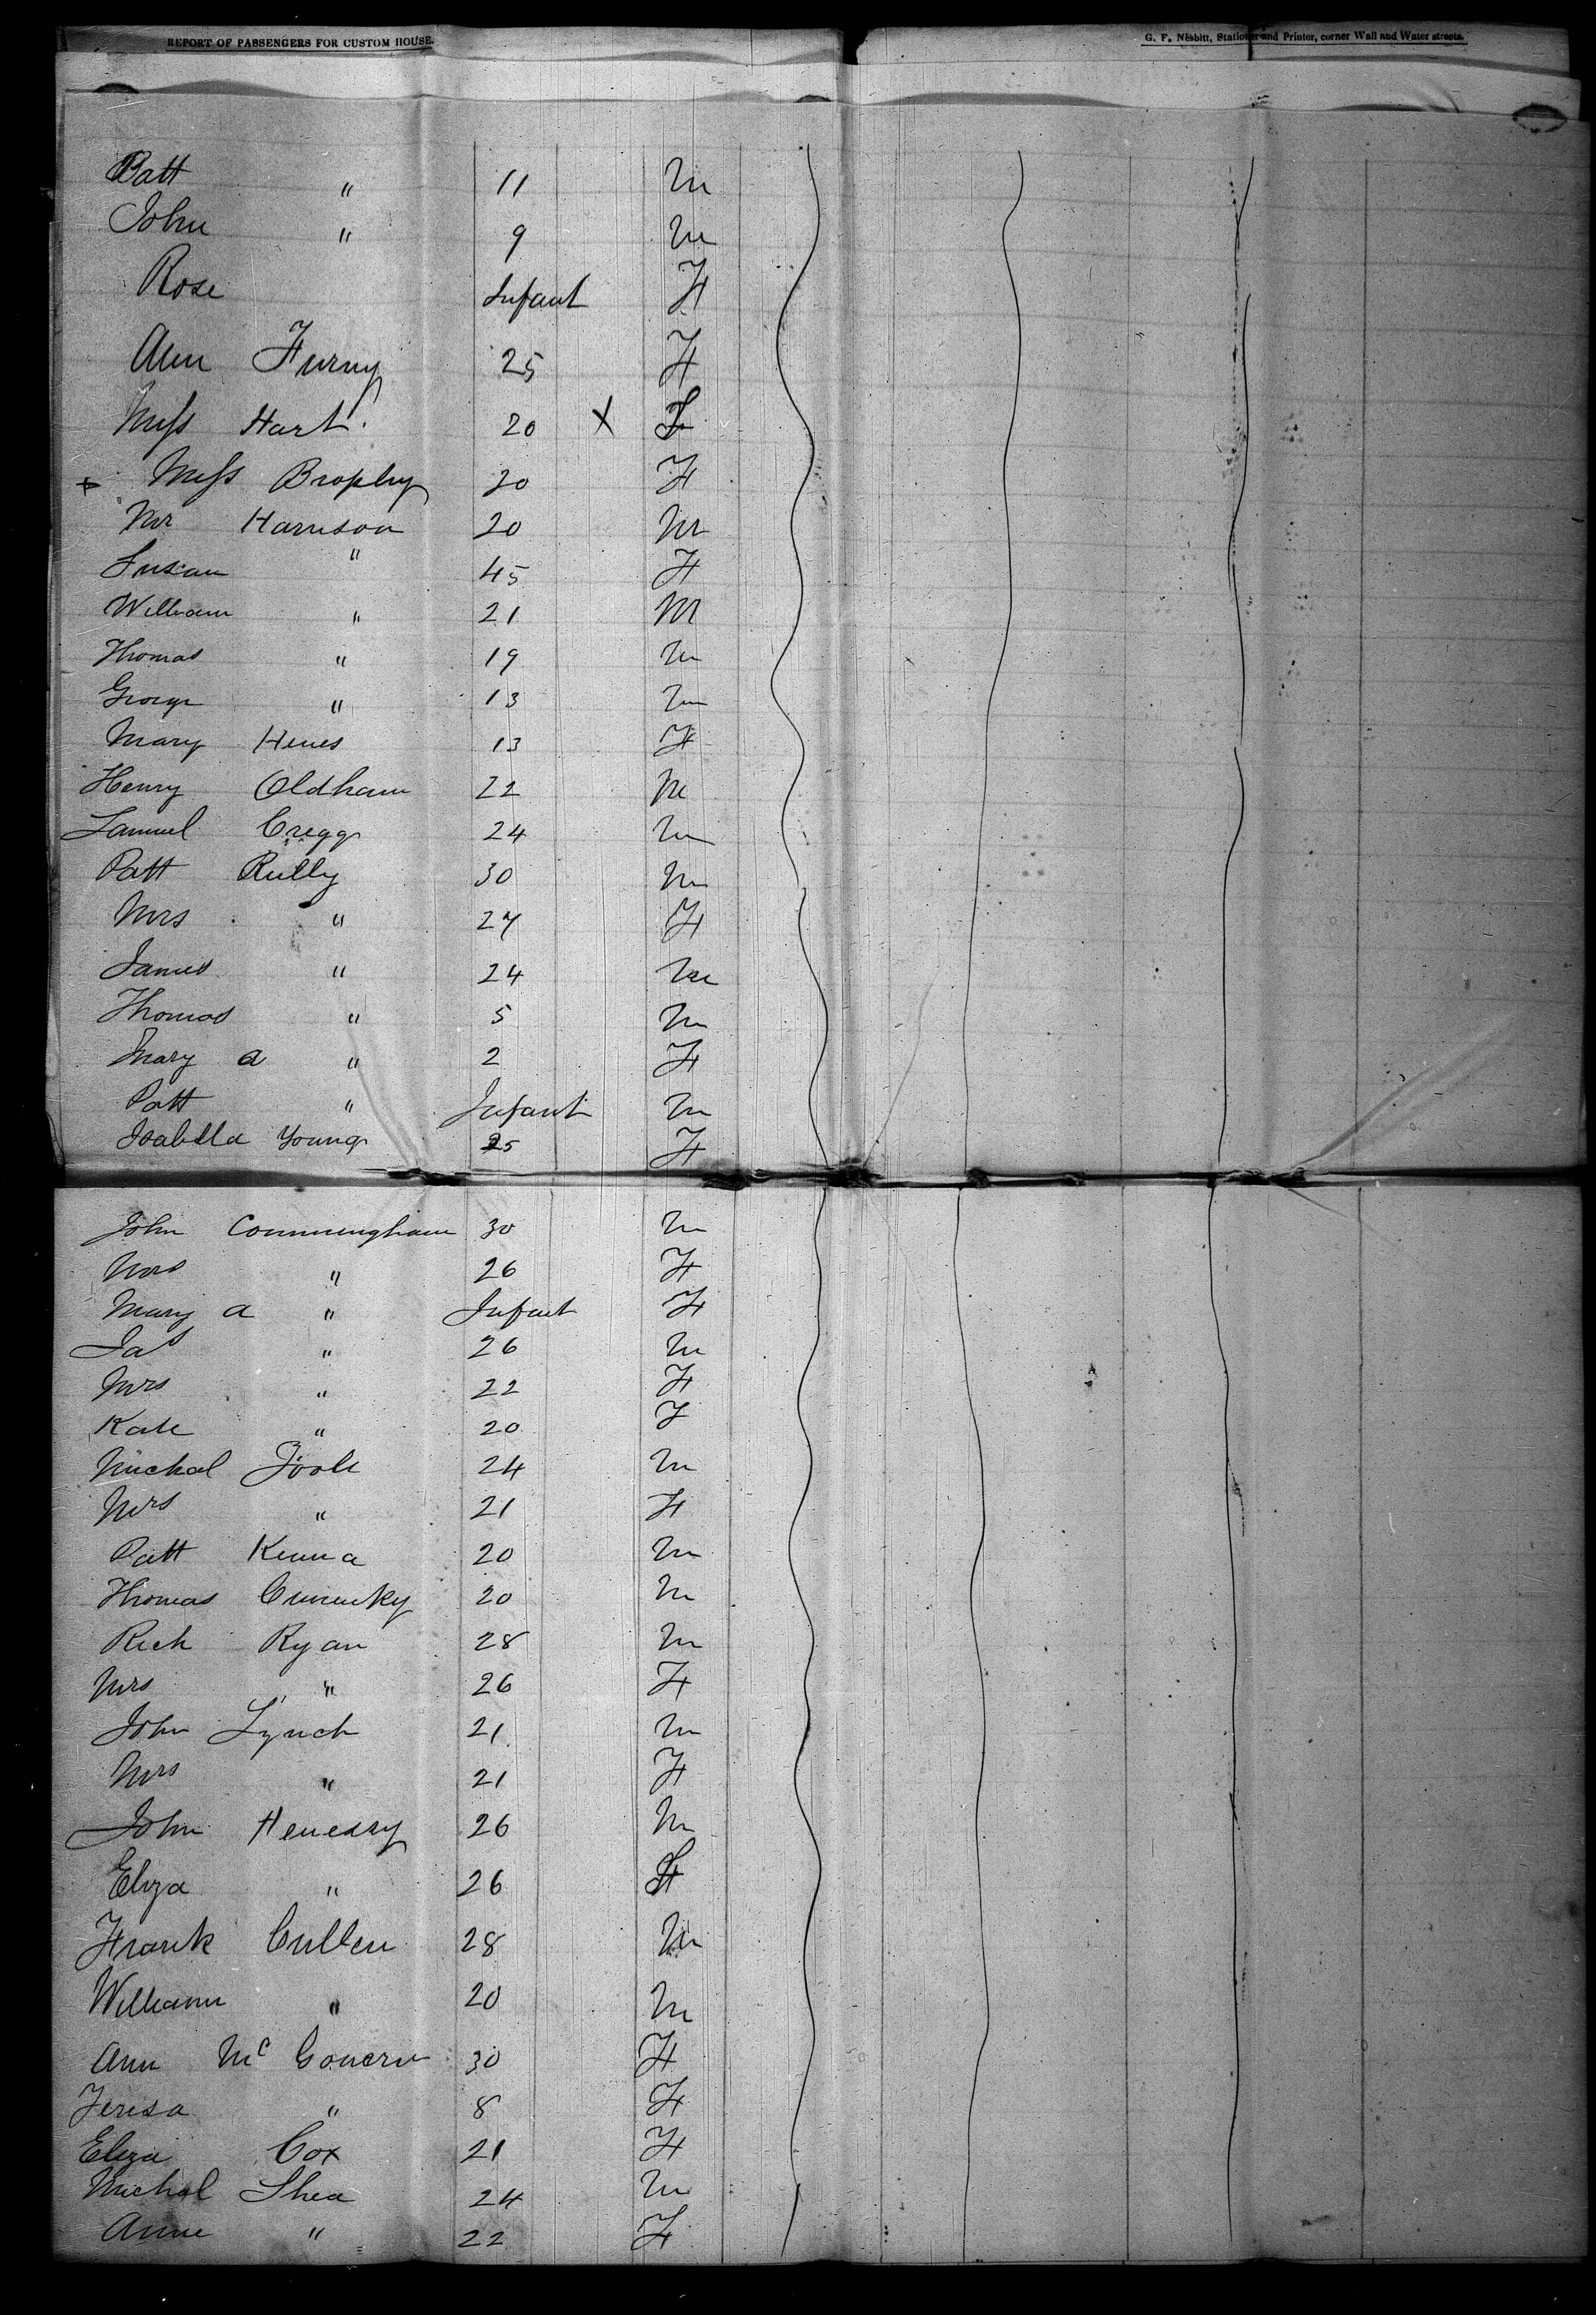 REPORT OF PASSENGERS FOR CUSTOM HOUSE.
G. F. Nesbitt, Stationer and Printer, corner Wall and Water streets.
Patt " 11 M
John " 9 M
Rose Infant F
Ann Furny 25 F
Miss Hart 20 X F
+ Miss Brophy 20 F
Mr Harrison 20 M
Susan " 45 F
William " 21 M
Thomas " 19 M
George " 13 M
Mary Hines 13 F
Henry Oldham 22 M
Samuel Cregg 24 M
Patt Rielly 30 M
Mrs " 27 F
James " 24 M
Thomas " 5 M
Mary A " 2 F
Patt " Infant M
Isabella Young 25 F
John Connningham 30 M
Mrs " 26 F
Mary A " Infant F
Jas " 26 M
Mrs " 22 F
Kate " 20 F
Michal Toole 24 M
Mrs " 21 F
Patt Kenna 20 M
Thomas 20 M
Rich Ryan 28 M
Mrs " 26 F
John Lynch 21 M
Mrs " 21 F
John Henessy 26 M
Eliza " 26 F
Frank Cullen 28 M
William " 20 M
Ann Mc Govern 30 F
Teresa " 8 F
Eliza Cox 21 F
Michal Shea 24 M
Anne " 22 F